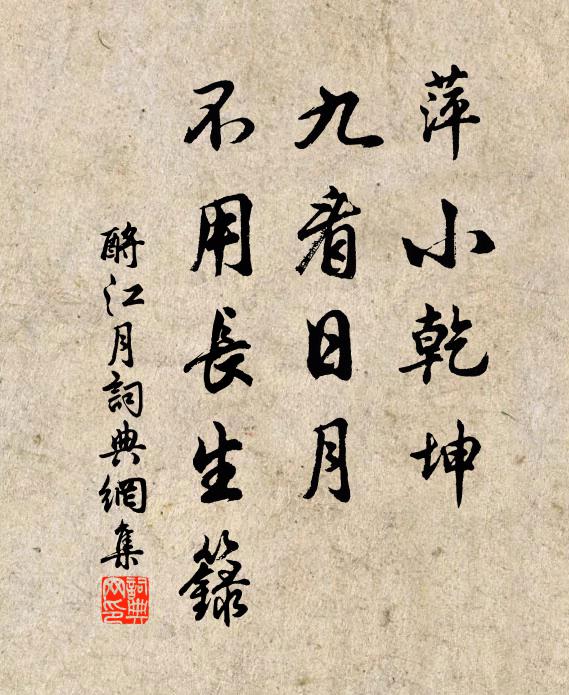 萍小乾坤
九看日月
不用長生籙
酹江月詞典網集
詞典
网印